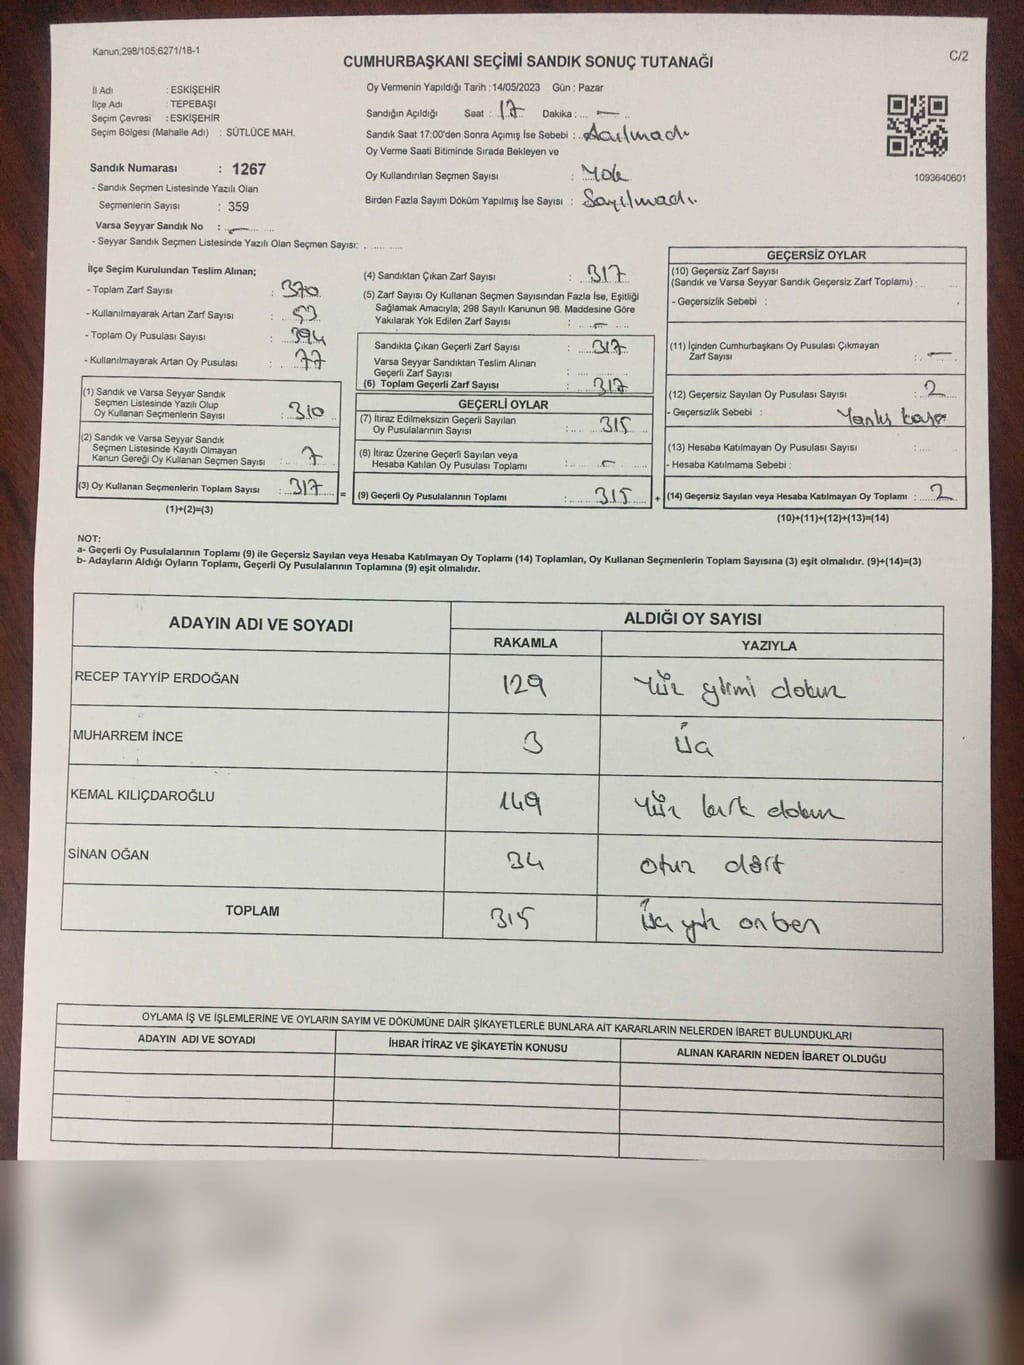 Kanun;298/105;6271/18-1
C/2
CUMHURBAŞKANI SEÇİMİ SANDIK SONUÇ TUTANAĞI
İl Adı : ESKİŞEHİR
İlçe Adı : TEPEBAŞI
Seçim Çevresi : ESKİŞEHİR
Seçim Bölgesi (Mahalle Adı) : SÜTLÜCE MAH.
Sandık Numarası : 1267
- Sandık Seçmen Listesinde Yazılı Olan
Seçmenlerin Sayısı : 359
Varsa Seyyar Sandık No : —
- Seyyar Sandık Seçmen Listesinde Yazılı Olan Seçmen Sayısı:
Oy Vermenin Yapıldığı Tarih :14/05/2023 Gün : Pazar
Sandığın Açıldığı Saat : 17 Dakika : —
Sandık Saat 17:00'den Sonra Açımış İse Sebebi : Açılmadı
Oy Verme Saati Bitiminde Sırada Bekleyen ve
Oy Kullandırılan Seçmen Sayısı : Yok
Birden Fazla Sayım Döküm Yapılmış İse Sayısı : Sayılmadı
1093640601
İlçe Seçim Kurulundan Teslim Alınan;
- Toplam Zarf Sayısı : 370
- Kullanılmayarak Artan Zarf Sayısı : 53
- Toplam Oy Pusulası Sayısı : 394
- Kullanılmayarak Artan Oy Pusulası : 77
(1) Sandık ve Varsa Seyyar Sandık
Seçmen Listesinde Yazılı Olup
Oy Kullanan Seçmenlerin Sayısı : 310
(2) Sandık ve Varsa Seyyar Sandık
Seçmen Listesinde Kayıtlı Olmayan
Kanun Gereği Oy Kullanan Seçmen Sayısı : 7
(3) Oy Kullanan Seçmenlerin Toplam Sayısı : 317 =
(1)+(2)=(3)
(4) Sandıktan Çıkan Zarf Sayısı : 317
(5) Zarf Sayısı Oy Kullanan Seçmen Sayısından Fazla İse, Eşitliği
Sağlamak Amacıyla; 298 Sayılı Kanunun 98. Maddesine Göre
Yakılarak Yok Edilen Zarf Sayısı : —
Sandıkta Çıkan Geçerli Zarf Sayısı : 317
Varsa Seyyar Sandıktan Teslim Alınan
Geçerli Zarf Sayısı :
(6) Toplam Geçerli Zarf Sayısı : 317
GEÇERLİ OYLAR
(7) İtiraz Edilmeksizin Geçerli Sayılan
Oy Pusulalarının Sayısı : 315
(8) İtiraz Üzerine Geçerli Sayılan veya
Hesaba Katılan Oy Pusulası Toplamı : —
(9) Geçerli Oy Pusulalarının Toplamı : 315 +
GEÇERSİZ OYLAR
(10) Geçersiz Zarf Sayısı
(Sandık ve Varsa Seyyar Sandık Geçersiz Zarf Toplamı) :
- Geçersizlik Sebebi :
(11) İçinden Cumhurbaşkanı Oy Pusulası Çıkmayan
Zarf Sayısı : —
(12) Geçersiz Sayılan Oy Pusulası Sayısı : 2
- Geçersizlik Sebebi : Yanlış kaşe
(13) Hesaba Katılmayan Oy Pusulası Sayısı :
- Hesaba Katılmama Sebebi :
(14) Geçersiz Sayılan veya Hesaba Katılmayan Oy Toplamı : 2
(10)+(11)+(12)+(13)=(14)
NOT:
a- Geçerli Oy Pusulalarının Toplamı (9) ile Geçersiz Sayılan veya Hesaba Katılmayan Oy Toplamı (14) Toplamları, Oy Kullanan Seçmenlerin Toplam Sayısına (3) eşit olmalıdır. (9)+(14)=(3)
b- Adayların Aldığı Oyların Toplamı, Geçerli Oy Pusulalarının Toplamına (9) eşit olmalıdır.
ADAYIN ADI VE SOYADI ALDIĞI OY SAYISI
RAKAMLA YAZIYLA
RECEP TAYYİP ERDOĞAN 129 Yüz yirmi dokuz
MUHARREM İNCE 3 Üç
KEMAL KILIÇDAROĞLU 149 Yüz kırk dokuz
SİNAN OĞAN 34 otuz dört
TOPLAM 315 Üç yüz on beş
OYLAMA İŞ VE İŞLEMLERİNE VE OYLARIN SAYIM VE DÖKÜMÜNE DAİR ŞİKAYETLERLE BUNLARA AİT KARARLARIN NELERDEN İBARET BULUNDUKLARI
ADAYIN ADI VE SOYADI İHBAR İTİRAZ VE ŞİKAYETİN KONUSU ALINAN KARARIN NEDEN İBARET OLDUĞU